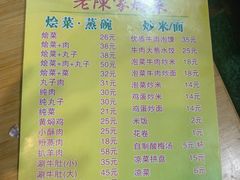 老陳家烩菜
烩菜·蒸碗
炒米/面
烩菜 26元
烩菜+肉 38元
烩菜+丸子 38元
烩菜+肉+丸子 50元
烩菜+菜 32元
大肉 31元
纯肉 30元
纯丸子 30元
纯菜 21元
黄焖鸡 25元
小酥肉 25元
粉蒸肉 28元
扒羊肉 58元
涮牛肚(小) 35元
涮牛肚(大) 45元
优质牛肉泡馍 35元
牛肉大葱水饺 25元
泡菜牛肉炒米 18元
泡菜牛肉炒面 18元
泡菜炒米 14元
鸡蛋炒米 14元
鸡蛋炒面 14元
米饭 2元
花卷 1元
自制酸梅汤 5元/杯
凉菜拼盘 15元
凉菜 6元